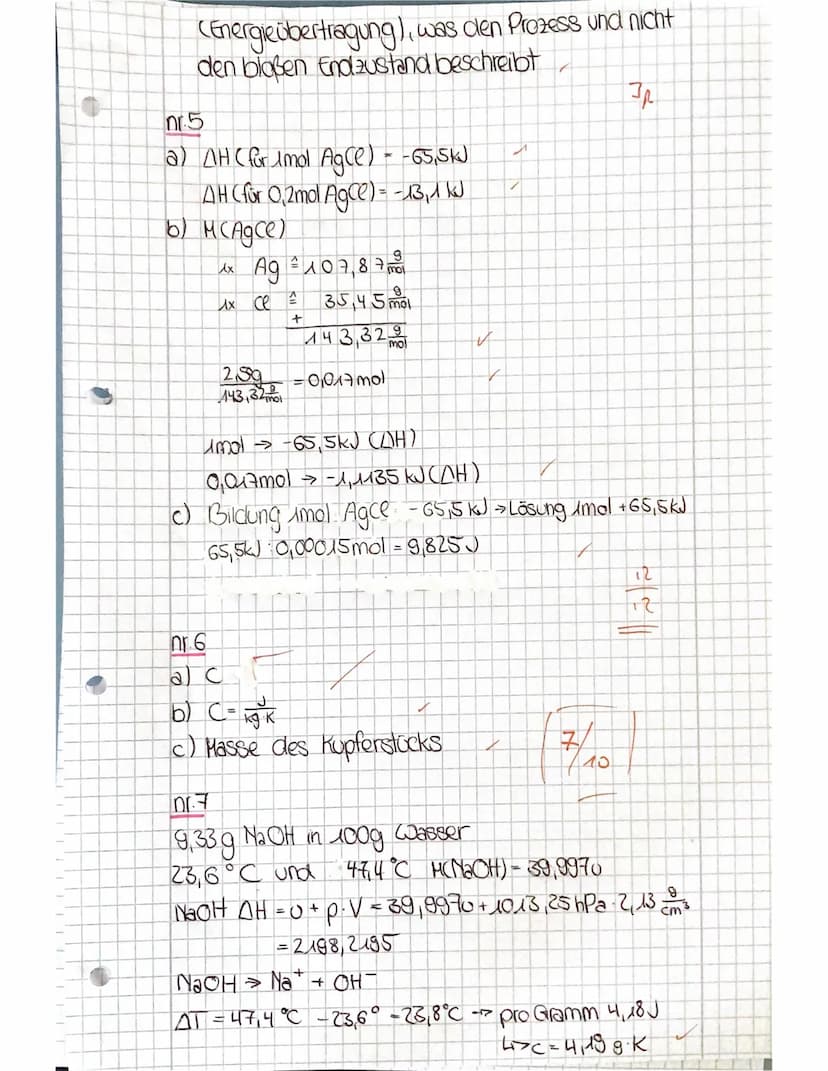 (Energieübertragung), was den Prozess und nicht
den bloßen Endzustand beschreibt
nr.5
a) ΔH (für 1mol AgCl) = -65,5kJ
ΔH (für 0,2mol AgCl) = -13,1 kJ
b) M(AgCl)
1x Ag ≙ 107,87 g/mol
1x Cl ≙ 35,45 g/mol
+
143,32 g/mol
2,50g / 143,32 g/mol = 0,017mol
1mol → -65,5kJ (ΔH)
0,017mol → -1,1135 kJ (ΔH)
c) Bildung 1mol AgCl -65,5 kJ → Lösung 1mol +65,5kJ
65,5kJ : 0,00015mol = 9,825J
12/12
nr.6
a) C
b) C = J/kg·K
c) Masse des Kupferstücks
7/10
nr.7
9,33g NaOH in 100g Wasser
23,6°C und 47,4°C M(NaOH) = 39,9970
NaOH ΔH = U + p·V = 39,9970 + 1013,25 hPa · 2,13 g/cm³
= 2198,2195
NaOH → Na⁺ + OH⁻
ΔT = 47,4°C - 23,6° = 23,8°C → pro Gramm 4,18J
↳ c = 4,19 g·K